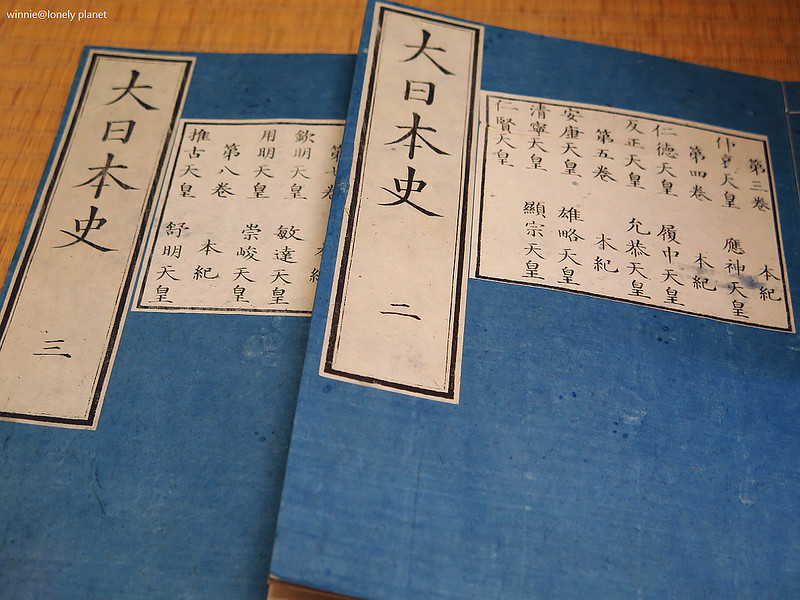 winnie@lonely planet
大日本史 二
第三卷 本紀
仲哀天皇 應神天皇
第四卷 本紀
仁德天皇 履中天皇
反正天皇 允恭天皇
第五卷 本紀
安康天皇 雄略天皇
清寧天皇 顯宗天皇
仁賢天皇
大日本史 三
欽明天皇 敏達天皇
用明天皇 崇峻天皇
第八卷 本紀
推古天皇 舒明天皇